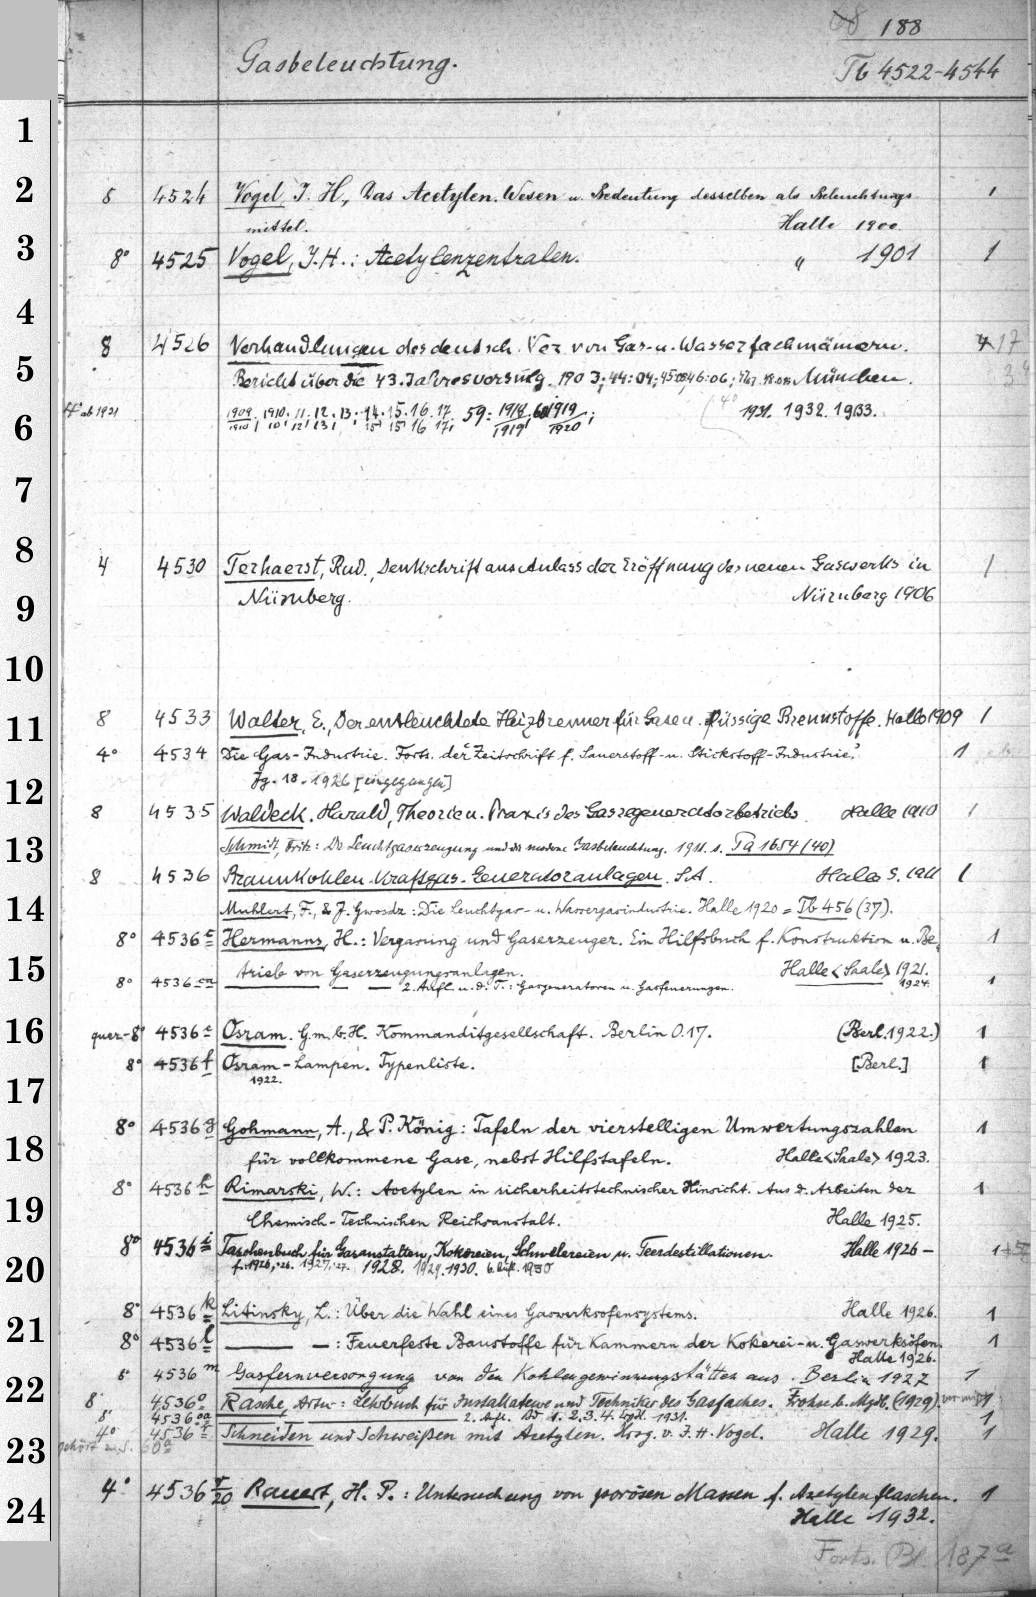 188
Gasbeleuchtung. Tb 4522-4544
1
2
3
4
5
6
7
8
9
10
11
12
13
14
15
16
17
18
19
20
21
22
23
24
8 4524 Vogel, J. H., Das Acetylen. Wesen u. Bedeutung desselben als Beleuchtungs- 1
mittel. Halle 1900.
8° 4525 Vogel, J. H.: Acetylenzentralen. " 1901 1
8 4526 Verhandlungen des deutsch. Ver. von Gas- u. Wasserfachmännern. 17
Bericht über die 43. Jahresversmlg. 1903; 44: 04; 46: 06; München.
4° ab 1921 1909/1910, 1910. 11. 12. 13. 14. 15. 16. 17 59: 1918/1919; 60 1919/1920; 4° 1931. 1932. 1933.
4 4530 Terhaerst, Rud., Denkschrift aus Anlass der Eröffnung des neuen Gaswerks in 1
Nürnberg. Nürnberg 1906
8 4533 Walter, E., Der entleuchtete Heizbrenner für Gase u. flüssige Brennstoffe. Halle 1909 1
4° 4534 Die Gas-Industrie. Forts. der "Zeitschrift f. Sauerstoff- u. Stickstoff-Industrie". 1
Jg. 18. 1926 [eingegangen]
8 4535 Waldeck, Harald, Theorie u. Praxis des Gasgeneratorbetriebs. Halle 1910 1
Schmidt, Fritz: Die Leuchtgaserzeugung und die moderne Gasbeleuchtung. 1911. s. Ta 1654 (40)
8 4536 Braunkohlen-Kraftgas-Generatoranlagen. S.A. Halle S. 1911 1
Muhlert, F., & J. Gwosdz: Die Leuchtgas- u. Wassergasindustrie. Halle 1920 = Tb 456 (37).
8° 4536 c Hermanns, H.: Vergasung und Gaserzeuger. Ein Hilfsbuch f. Konstruktion u. Be- 1
trieb von Gaserzeugungsanlagen. Halle <Saale> 1921.
8° 4536 ca — — — 2. Aufl. u. d. T.: Gasgeneratoren u. Gasfeuerungen. 1924. 1
quer-8° 4536 e Osram. G.m.b.H. Kommanditgesellschaft. Berlin O.17. (Berl. 1922.) 1
8° 4536 f Osram-Lampen. Typenliste. [Berl.] 1
1922.
8° 4536 g Gohmann, A., & P. König: Tafeln der vierstelligen Umwertungszahlen 1
für vollkommene Gase, nebst Hilfstafeln. Halle <Saale> 1923.
8° 4536 h Rimarski, W.: Acetylen in sicherheitstechnischer Hinsicht. Aus d. Arbeiten der 1
Chemisch-Technischen Reichsanstalt. Halle 1925.
8° 4536 i Taschenbuch für Gasanstalten, Kokereien, Schwelereien u. Teerdestillationen. Halle 1926 – 1
1928. 1929. 1930. 6. Aufl. 1930
8° 4536 k Litinsky, L.: Über die Wahl eines Gaswerksofensystems. Halle 1926. 1
8° 4536 l — —: Feuerfeste Baustoffe für Kammern der Kokerei- u. Gaswerksöfen. 1
Halle 1926.
8° 4536 m Gasfernversorgung von den Kohlengewinnungsstätten aus. Berlin 1927 1
8° 4536 o Rasche, Artur: Lehrbuch für Installateure und Techniker des Gasfaches. Frohse b. Mgdb. (1929). 1
8° 4536 oa 2. Aufl. Bd 1. 2. 3. 4. Mgdb. 1931. 1
4° 4536 r Schneiden und Schweißen mit Azetylen. Hrsg. v. J. H. Vogel. Halle 1929. 1
gehört zu S. 60a
4° 4536 r/20 Rauert, H. P.: Untersuchung von porösen Massen f. Azetylenflaschen. 1
Halle 1932.
Forts. Bl. 187 a